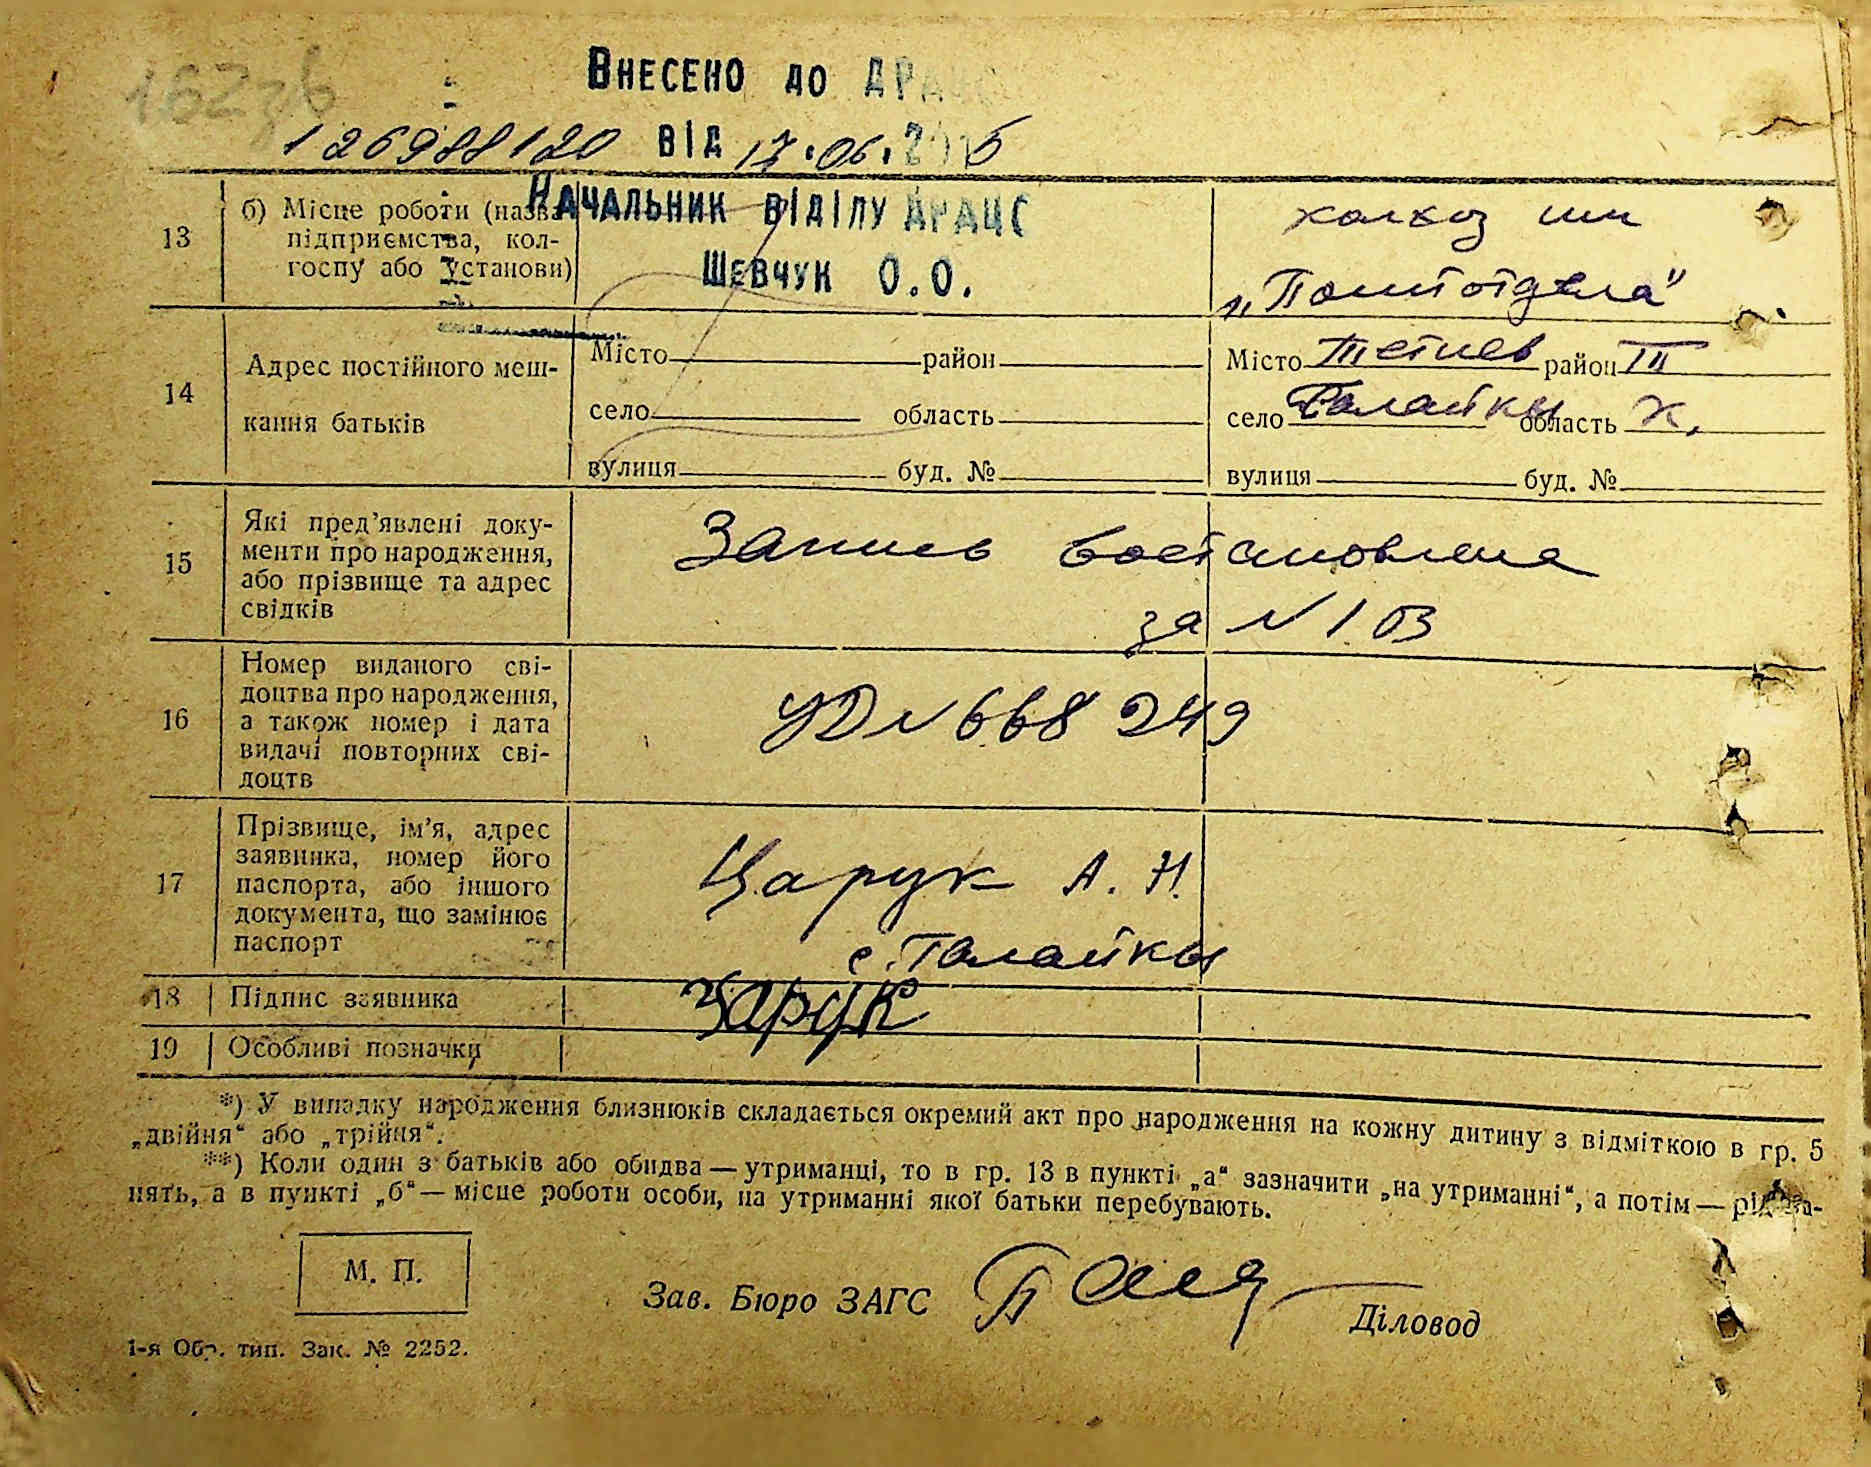 162зб
Внесено до ДРАЦС
126988120 від 17.06.2015
Начальник відділу ДРАЦС
Шевчук О.О.
13
б) Місце роботи (назва
підприємства, кол-
госпу або установи)
колхоз им
„Политотдела"
14
Адрес постійного меш-
кання батьків
Місто район
село область
вулиця буд. №
Місто Тетиев район ТП
село Галайки область К.
вулиця буд. №
15
Які пред'явлені доку-
менти про народження,
або прізвище та адрес
свідків
Запись востановлена
за № 103
16
Номер виданого сві-
доцтва про народження,
а також номер і дата
видачі повторних сві-
доцтв
УД № 668249
17
Прізвище, ім'я, адрес
заявника, номер його
паспорта, або іншого
документа, що замінює
паспорт
Царук А. Н.
с. Галайки
18 Підпис заявника
Царук
19 Особливі позначки
*) У випадку народження близнюків складається окремий акт про народження на кожну дитину з відміткою в гр. 5
„двійня" або „трійня".
**) Коли один з батьків або обидва — утриманці, то в гр. 13 в пункті „а" зазначити „на утриманні", а потім — рід за-
нять, а в пункті „б" — місце роботи особи, на утриманні якої батьки перебувають.
М. П.
Зав. Бюро ЗАГС
Діловод
1-я Обр. тип. Зак. № 2252.